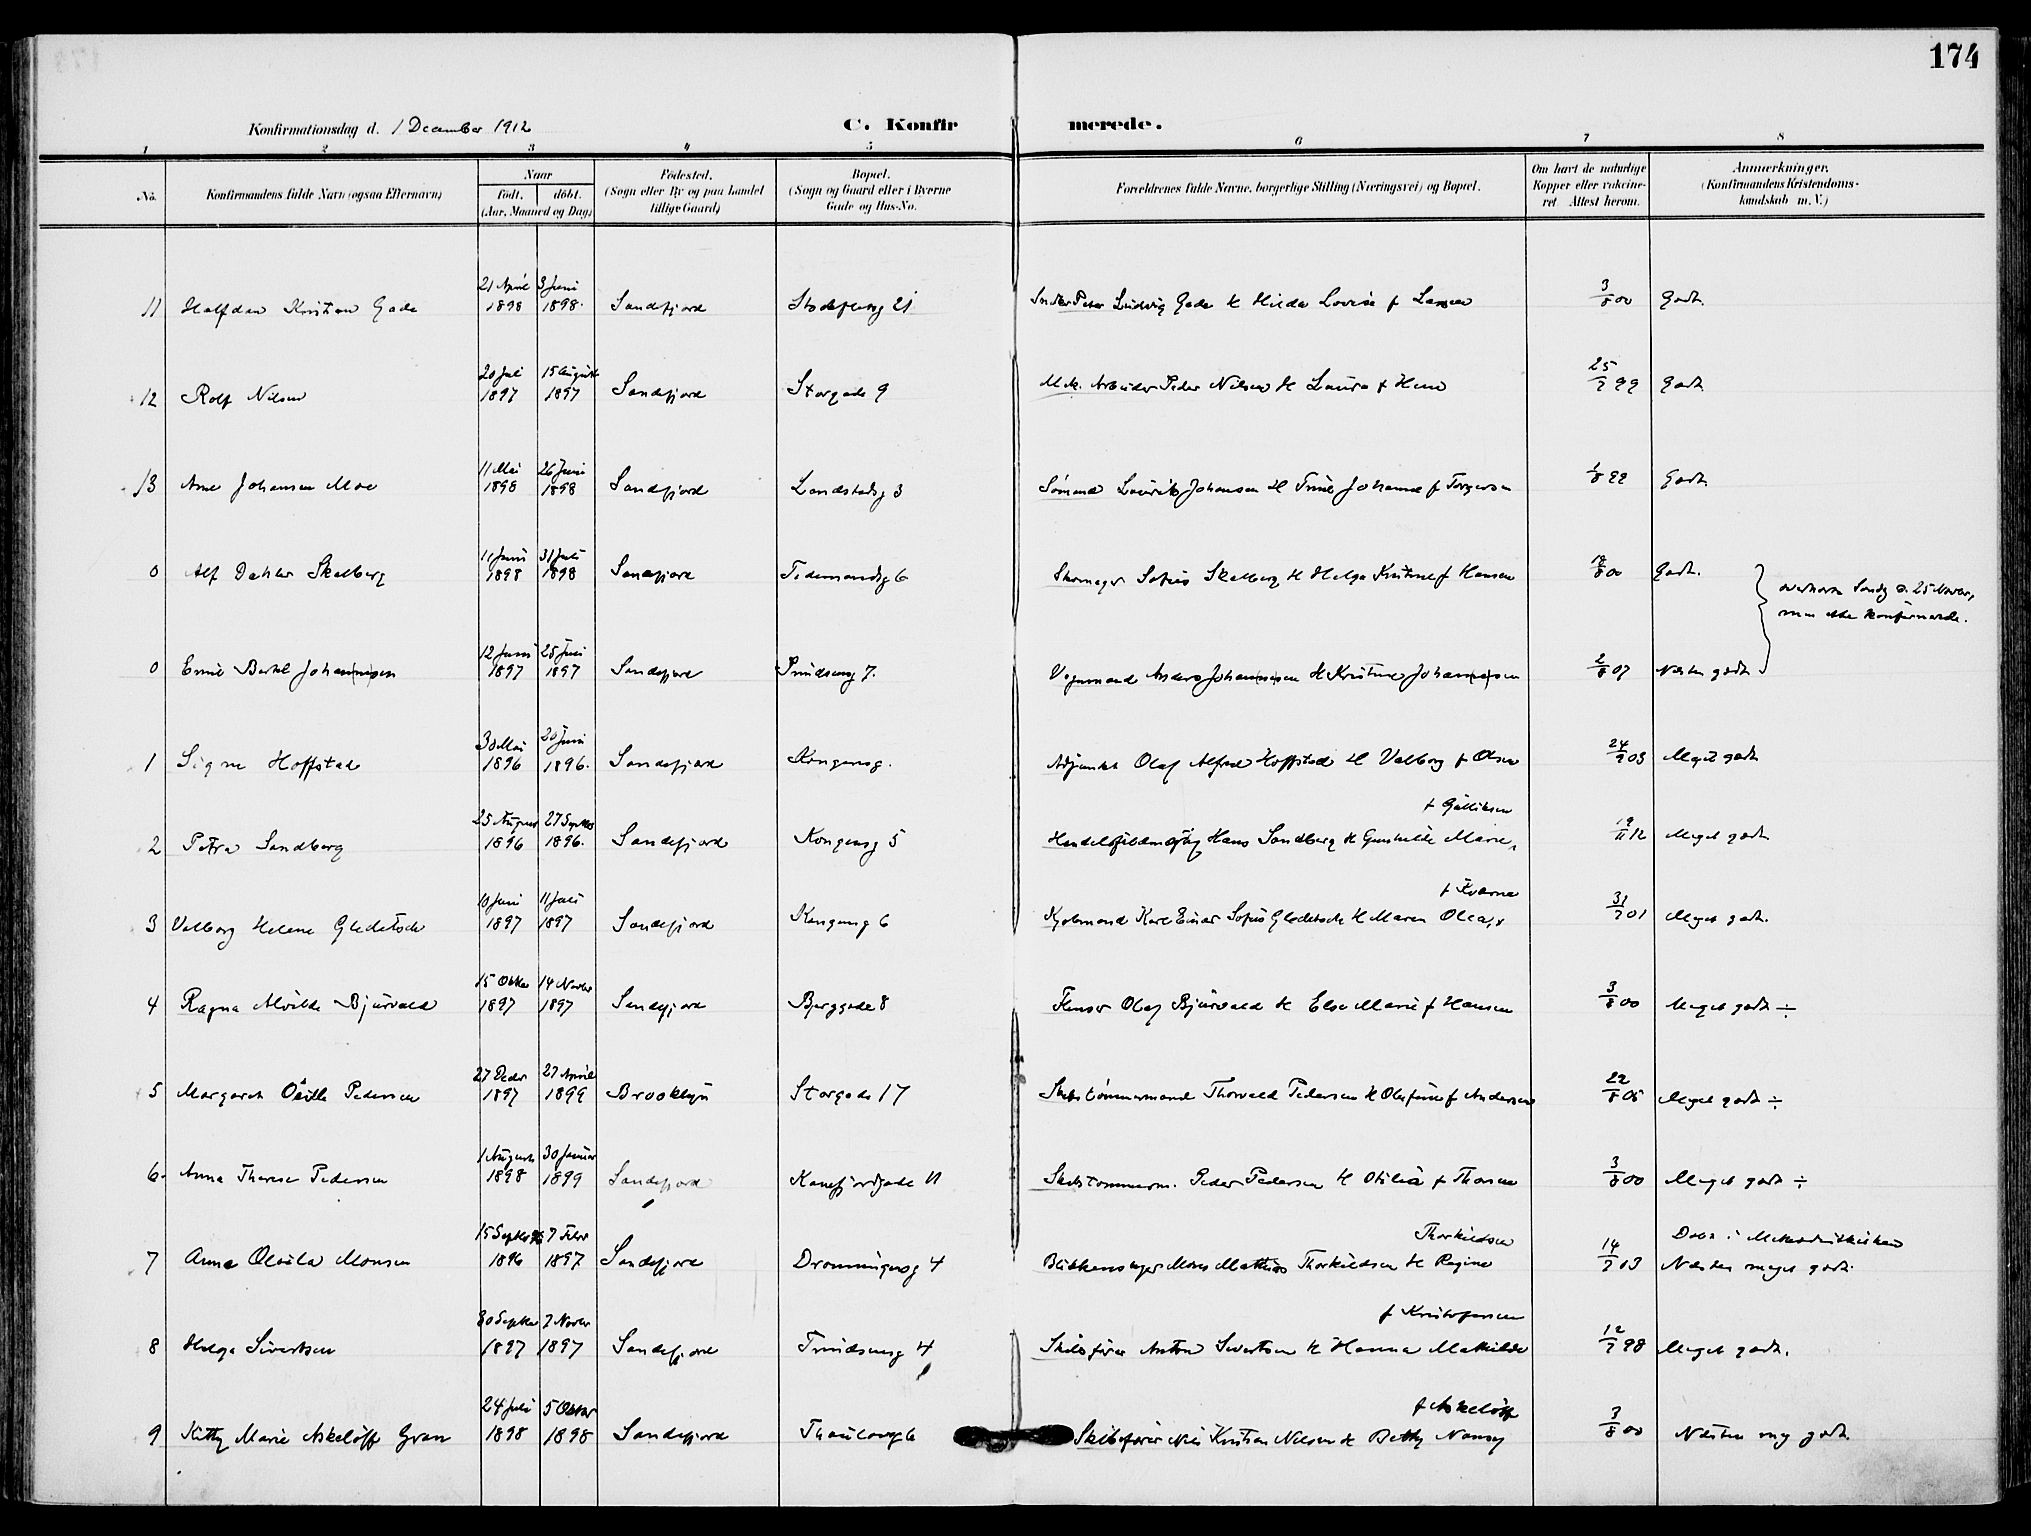 174
Konfirmationsdag d. 1 December 1912
C. Konfirmerede.
1 2 3 4 5 6 7 8
No.
Konfirmandens fulde Navn (ogsaa Efternavn)
Naar
født. døbt.
(Aar, Maaned og Dag)
Fødested.
(Sogn eller By og paa Landet
tillige Gaard)
Bopæl.
(Sogn og Gaard eller i Byerne
Gade og Hus-No.
Forældrenes fulde Navne, borgerlige Stilling (Næringsvei) og Bopæl.
Om havt de naturlige
Kopper eller vaksine-
ret Attest herom.
Anmerkninger.
(Konfirmandens Kristendoms-
kundskab m.V.)
21 April 3 Juni
11 Halfdan Kristian Gade 1898 1898. Sandefjord 21 Peter Ludvig Gade & Hilda Lovise f Larsen 3/8 00 Godt.
20 Juli 15 August
12 Rolf Nilsen 1897 1897 Sandefjord Storgade 9 Mek. Arbeider Peder Nilsen & Laura f 25/7 99 Godt
11 Mai 26 Juni
13 Arne Johansen Moe 1898 1898 Sandefjord Landstadsg 3 Sømand Lauritz Johansen & Trine Johanne f Torgersen 1/8 99 Godt.
11 Juni 31 Juli
0 Alf Dahler Skalberg 1898 1898 Sandefjord Tidemandsg 6 Skomager Sofus Skalberg & Helga Kristine f Hansen 18/8 00 Godt.
overhørt Søndg d. 25 Novbr,
men ikke konfirmerede.
12 Juni 25 Juli
0 Emil Bertel Johannesen 1897 1897 Sandefjord 7. Vognmand Anders Johannesen & Kristine Johannesen 2/8 07 Næsten godt
30 Mai 20 Juni
1 Signe Hoffstad 1896 1896. Sandefjord Kongensg. Adjunkt Olaf Alfred Hoffstad & Valborg f Olsen 24/9 03 Meget godt
25 August 27 Septbr f Gulliksen
2 Petra Sandberg 1896 1896. Sandefjord Kongensg 5 Hans Sandberg & Gunhilde Marie, 19/11 12 Meget godt
10 Juni 11 Juli f Kværne
3 Valborg Helene Gleditsch 1897 1897 Sandefjord Kongensg 6 Kjøbmand Karl Einar Sofus Gleditsch & Maren Olea, 31/7 01 Meget godt.
15 Oktbr 14 Novbr
4 Ragna Alvilde Bjurvald 1897 1897 Sandefjord Bjerggade 8 Flenser Olaf Bjurvald & Else Marie f Hansen 3/8 00 Meget godt ÷
27 Decbr 27 April
5 Margareth Pedersen 1897 1899 Brooklyn Storgade 17 Skibstømmermand Thorvald Pedersen & Olefine f Andersen 22/8 05 Meget godt ÷
1 August 30 Januar
6. Anna Therese Pedersen 1898 1899 Sandefjord Kamfjordgade 11 Skibstømmerm. Peder Pedersen & Otilia f Thorsen 3/8 00 Meget godt ÷
15 Septbr 7 Febr Thorkildsen Døbt i Metodistkirken
7 Anna Olavla Monsen 1896 1897 Sandefjord Dronningensg 4 Blikkenslager Mons Mathias Thorkildsen & Regine 14/7 03 Næsten meget godt.
30 Septbr 7 Novbr f Kristofersen
8 Helga Sivertsen 1897 1897 Sandefjord 4 Skibsfører Anton Sivertsen & Hanna Mathilde 12/7 98 Meget godt.
24 Juli 5 Oktbr f Askeløff
9 Kitty Marie Askeløff Gran 1898 1898 Sandefjord Thaulowg 6 Skibsfører Nils Kristian Nilsen & Betty Nansy 3/8 00 Næsten meg godt.